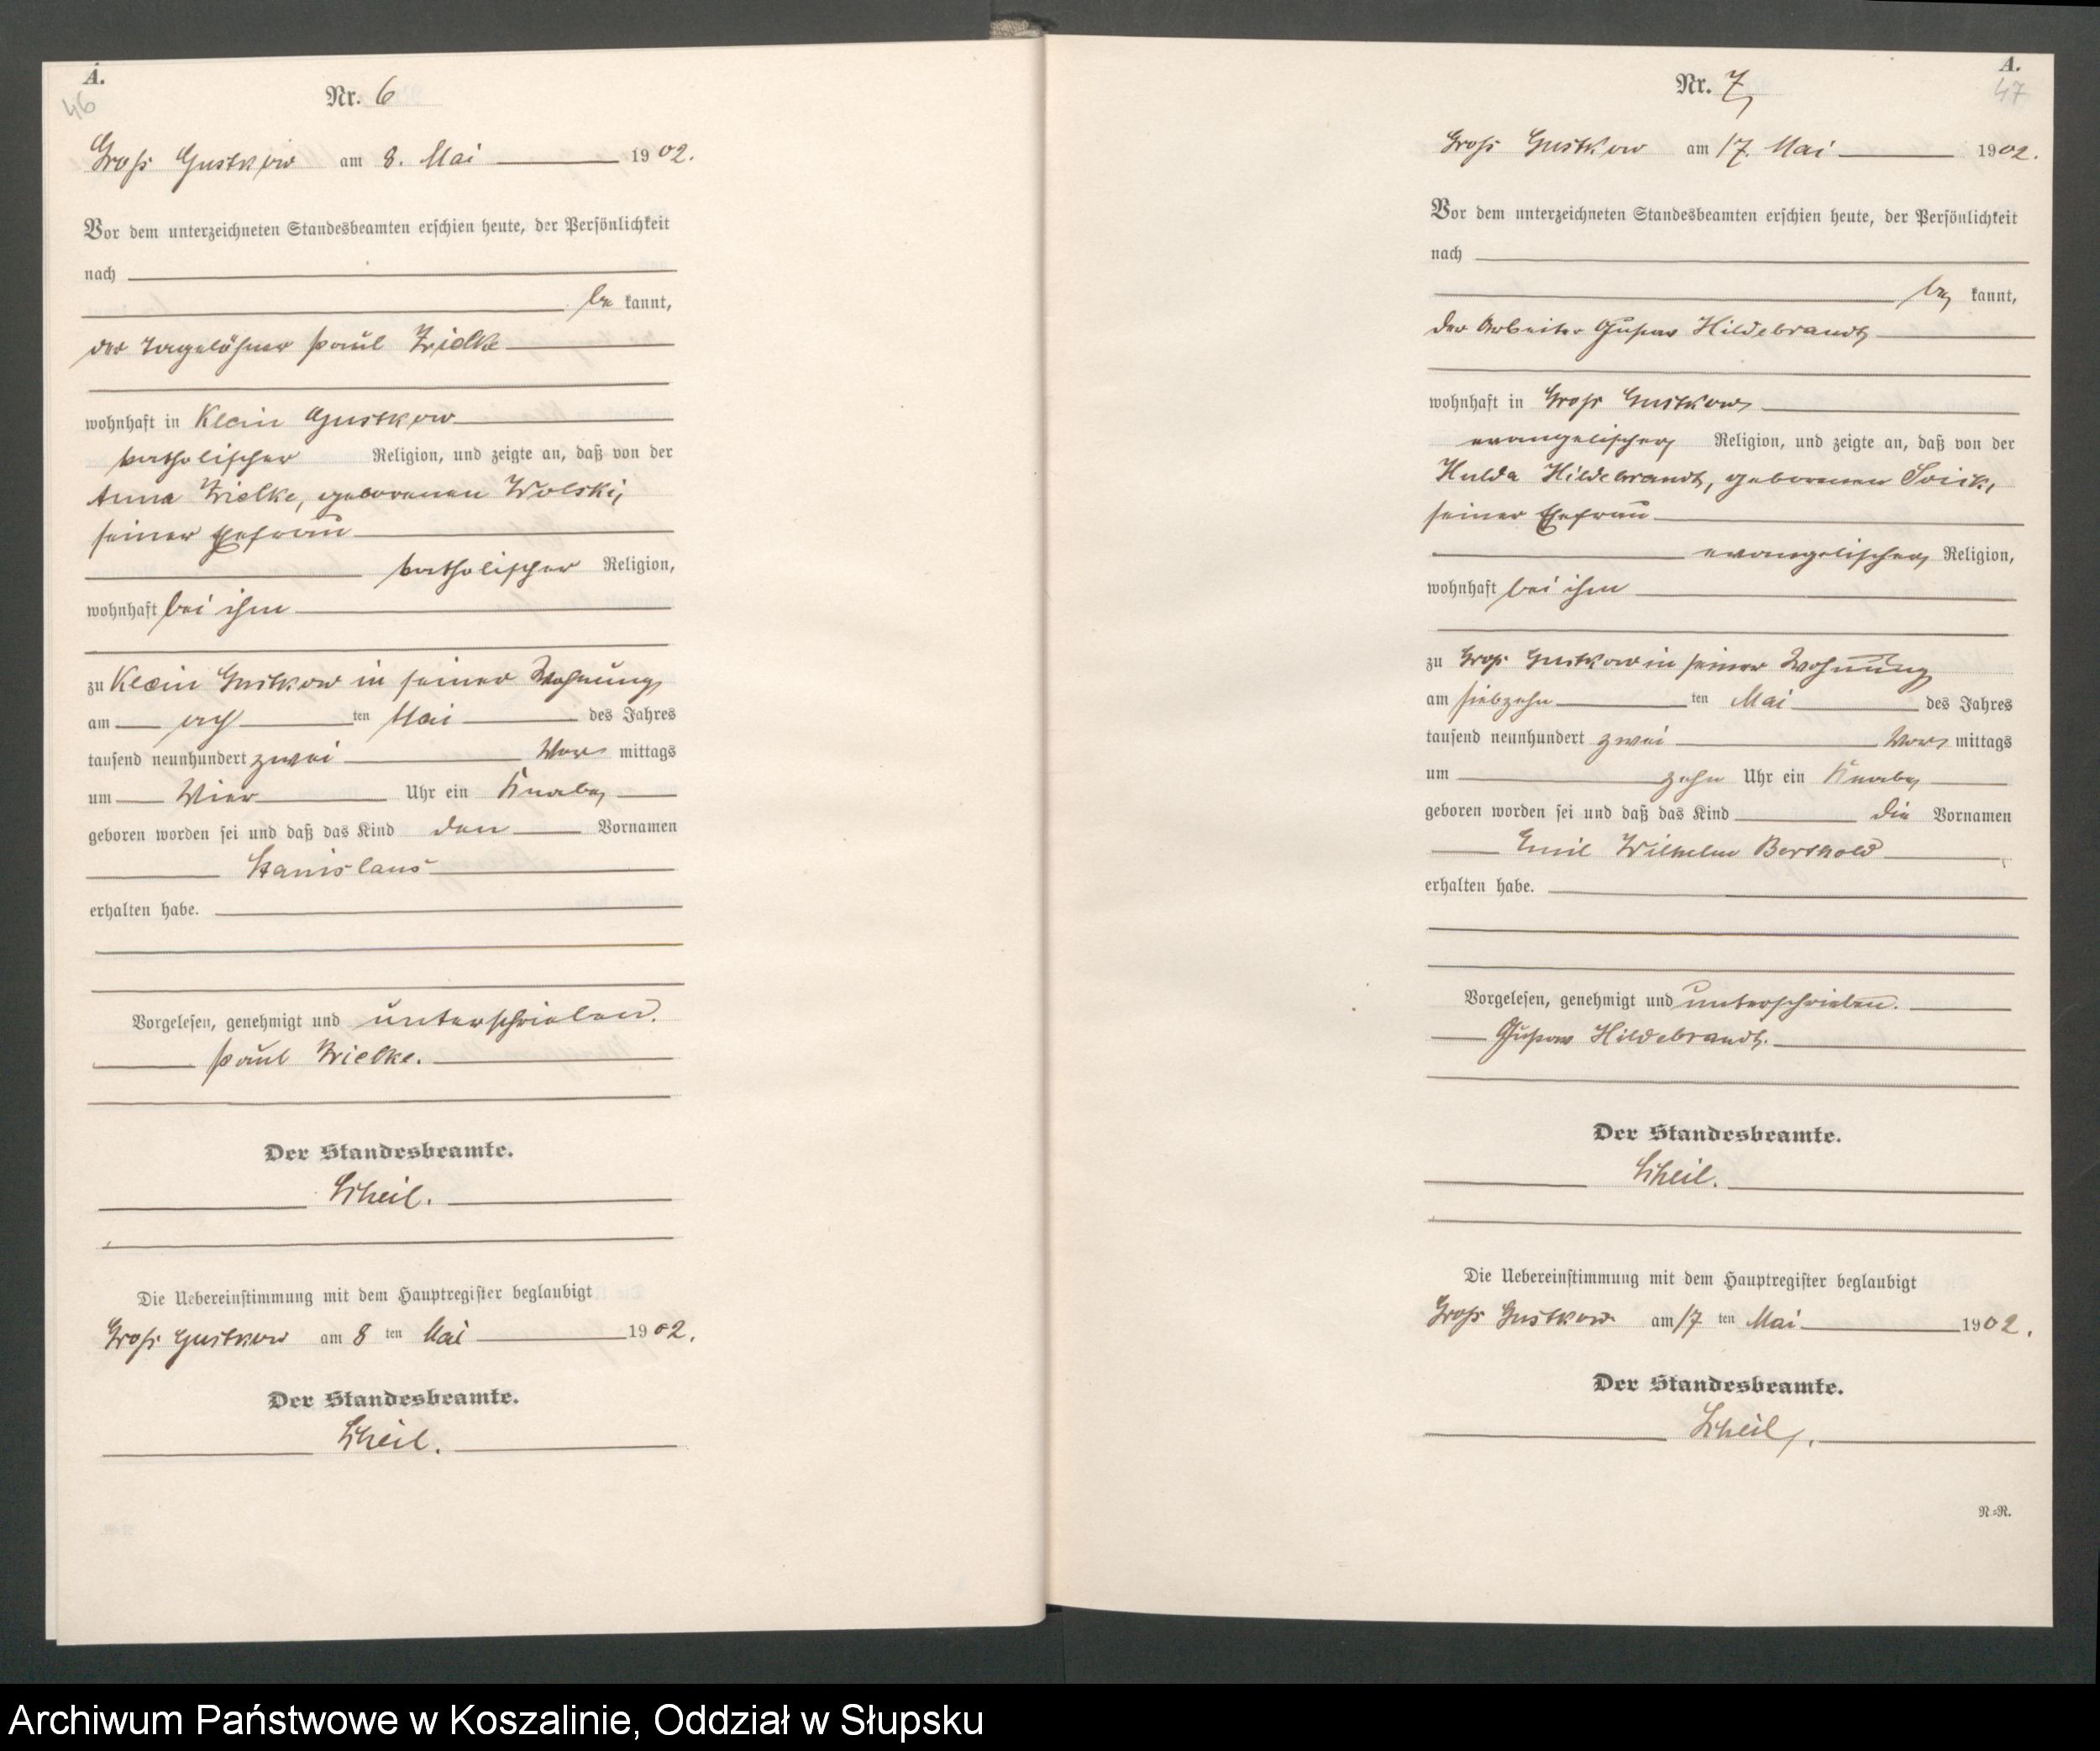 A.
46
Nr. 6
Groß Gustkow am 8. Mai 1902.
Vor dem unterzeichneten Standesbeamten erschien heute, der Persönlichkeit
nach
be kannt,
der Tagelöhner Paul Trielke
wohnhaft in Klein Gustkow
katholischer Religion, und zeigte an, daß von der
Anna Trielke, geborenen Wolski,
seiner Ehefrau
katholischer Religion,
wohnhaft bei ihm
zu Klein Gustkow in seiner Wohnung
am acht ten Mai des Jahres
tausend neunhundert zwei Vor mittags
um Vier Uhr ein Knabe
geboren worden sei und daß das Kind den Vornamen
Stanislaus
erhalten habe.
Vorgelesen, genehmigt und unterschrieben.
Paul Trielke.
Der Standesbeamte.
Scheil.
Die Uebereinstimmung mit dem Hauptregister beglaubigt
Groß Gustkow am 8 ten Mai 1902.
Der Standesbeamte.
Scheil.
A.
47
Nr. 7
Groß Gustkow am 17. Mai 1902.
Vor dem unterzeichneten Standesbeamten erschien heute, der Persönlichkeit
nach
be kannt,
der Arbeiter Gustav Hildebrandt
wohnhaft in Groß Gustkow
evangelischer Religion, und zeigte an, daß von der
Hulda Hildebrandt, geborenen
seiner Ehefrau
evangelischer Religion,
wohnhaft bei ihm
zu Groß Gustkow in seiner Wohnung
am siebzehn ten Mai des Jahres
tausend neunhundert zwei Vor mittags
um zehn Uhr ein Knabe
geboren worden sei und daß das Kind die Vornamen
Emil Wilhelm Berthold
erhalten habe.
Vorgelesen, genehmigt und unterschrieben.
Gustav Hildebrandt.
Der Standesbeamte.
Scheil.
Die Uebereinstimmung mit dem Hauptregister beglaubigt
Groß Gustkow am 17 ten Mai 1902.
Der Standesbeamte.
Scheil.
R.=R.
Archiwum Państwowe w Koszalinie, Oddział w Słupsku